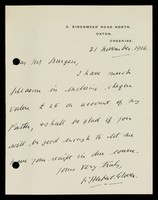 5, BIRKENHEAD ROAD NORTH,
OXTON,
CHESHIRE.
21 November, 1906
Dear Mrs Burgon,
I have much
pleasure in enclosing cheque
value £ on account of my
Father, & shall be glad if you
will be good enough to let me
have your receipt in due course.
Yours very truly,